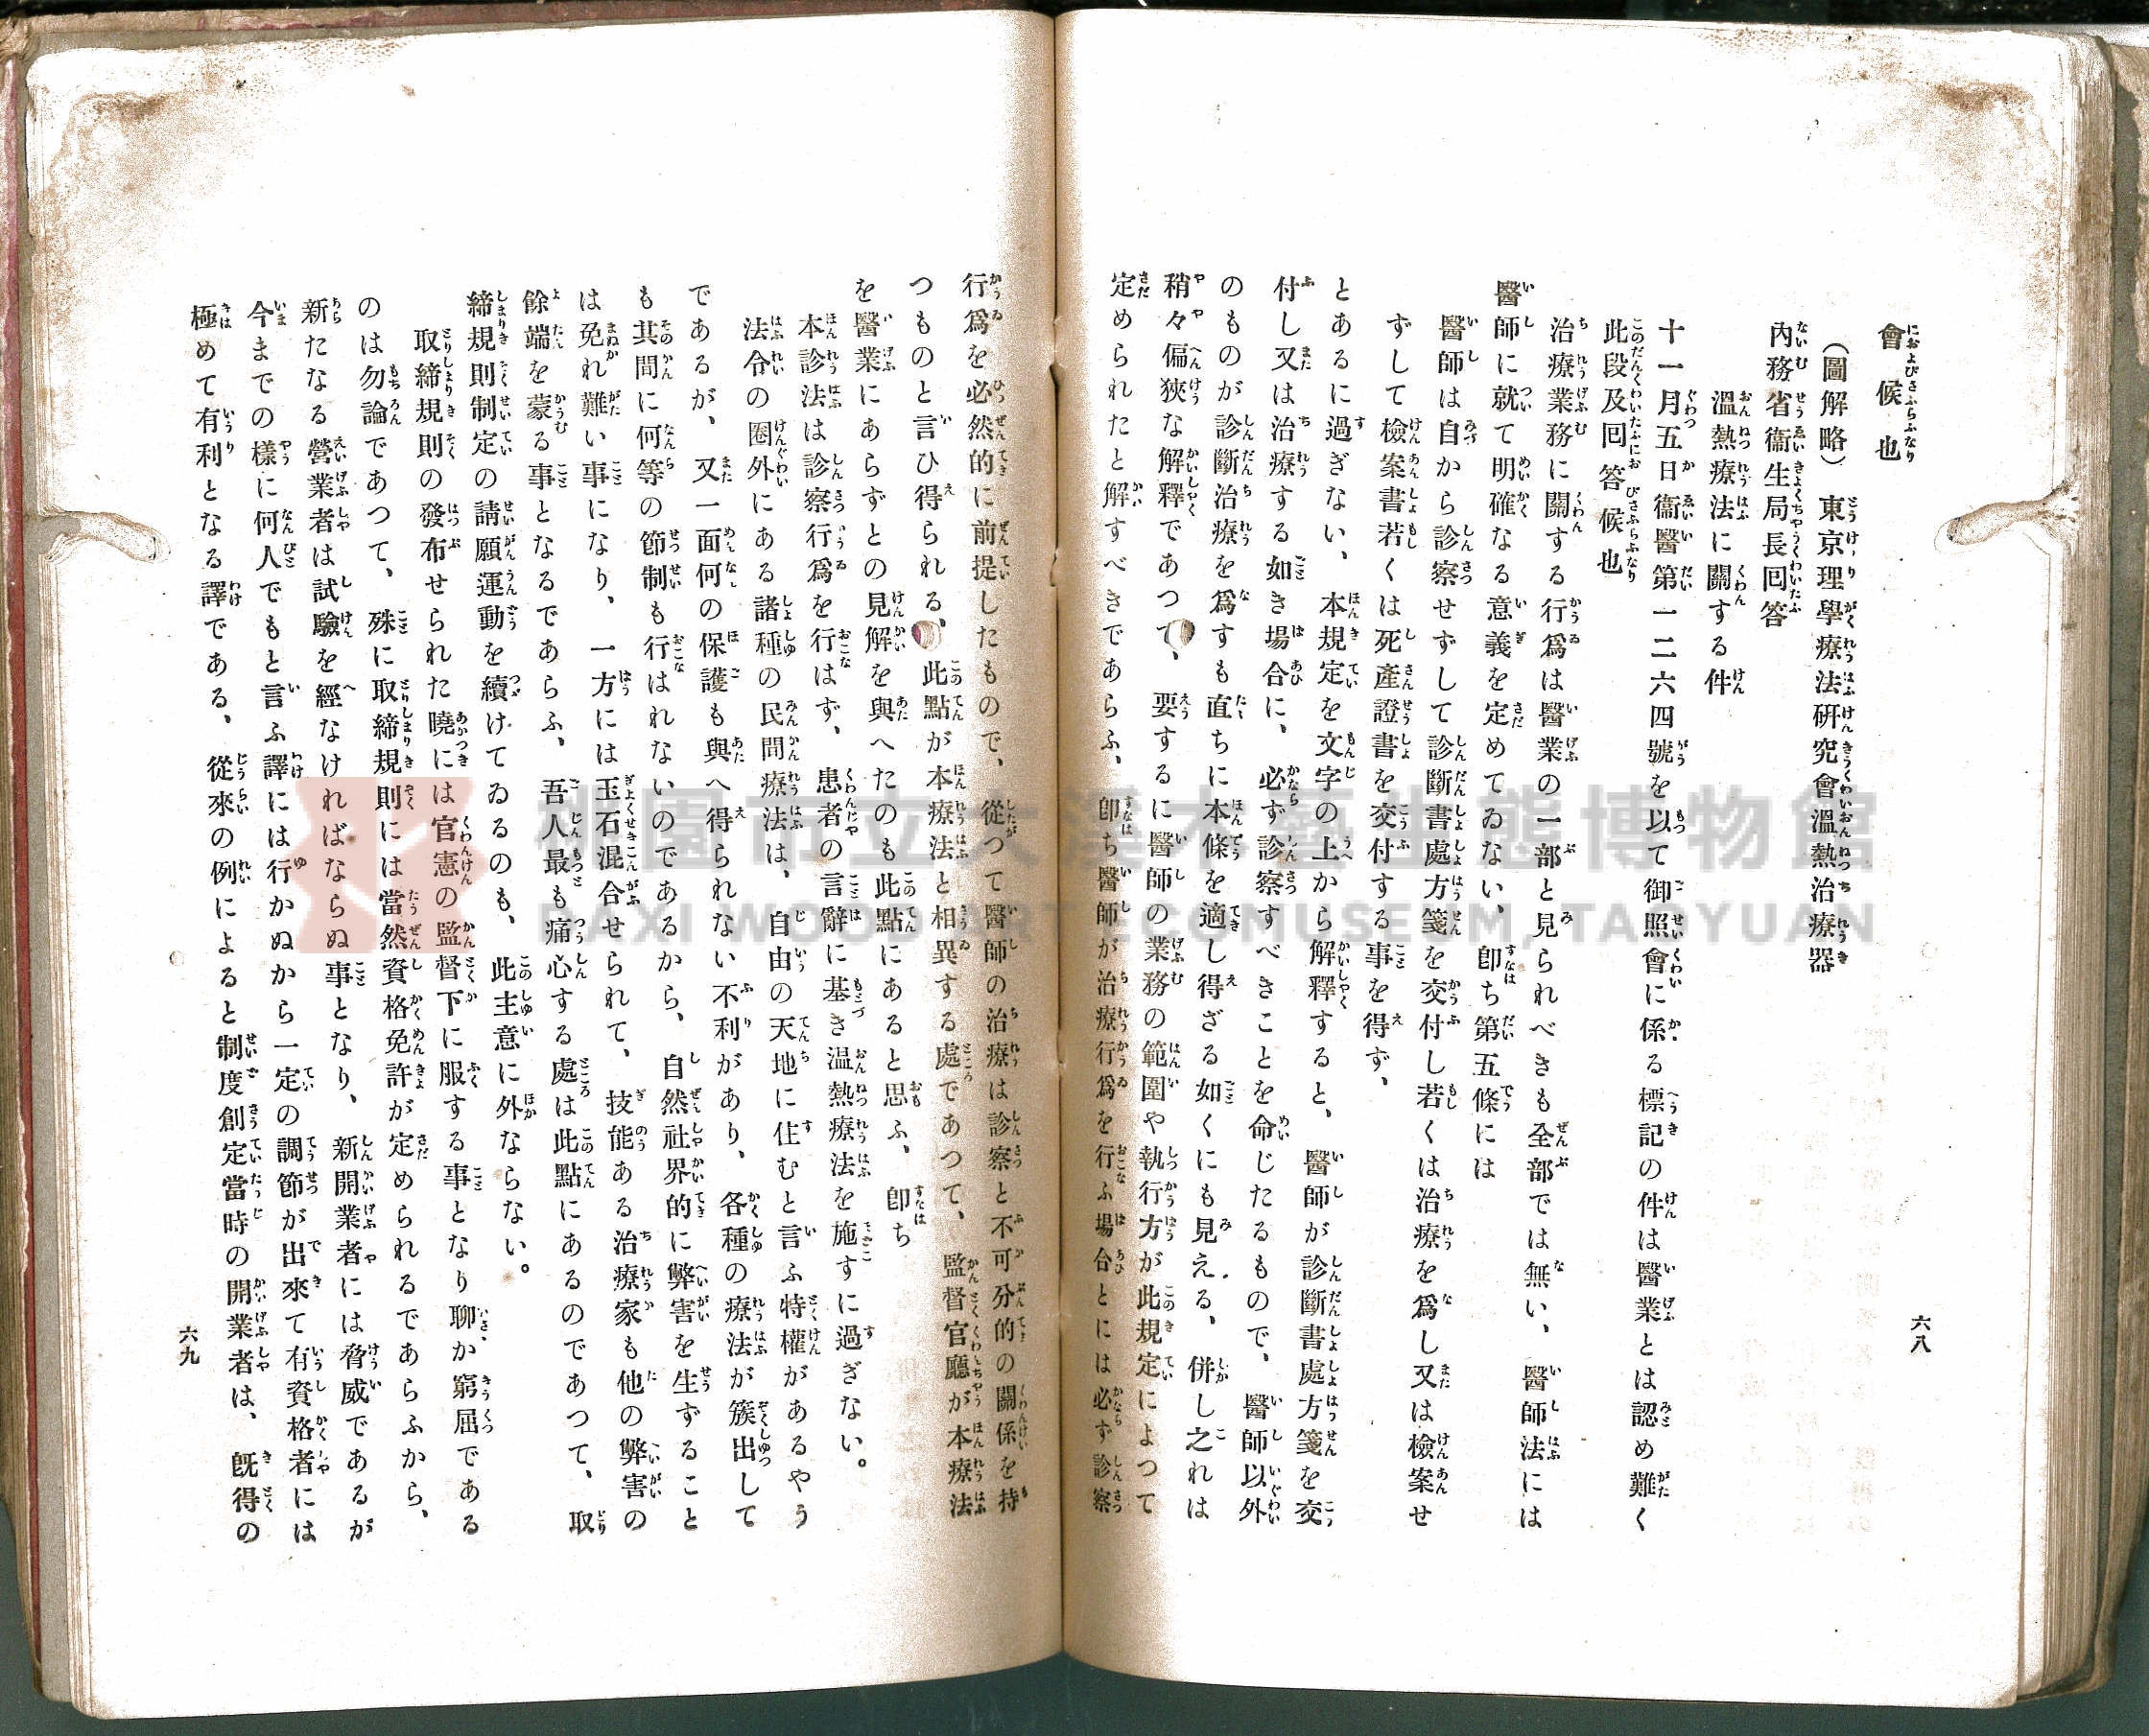 六八
會候也
(圖解略) 東京理學療法硏究會溫熱治療器
內務省衞生局長囘答
溫熱療法に關する件
十一月五日衞醫第一二六四號を以て御照會に係る標記の件は醫業とは認め難く
此段及囘答候也
治療業務に關する行爲は醫業の一部と見られべきも全部では無い、醫師法には
醫師に就て明確なる意義を定めてゐない、卽ち第五條には
醫師は自から診察せずして診斷書處方箋を交付し若くは治療を爲し又は檢案せ
ずして檢案書若くは死產證書を交付する事を得ず、
とあるに過ぎない、本規定を文字の上から解釋すると、醫師が診斷書處方箋を交
付し又は治療する如き場合に、必ず診察すべきことを命じたるもので、醫師以外
のものが診斷治療を爲すも直ちに本條を適し得ざる如くにも見える、倂し之れは
稍々偏狹な解釋であつて、要するに醫師の業務の範圍や執行方が此規定によつて
定められたと解すべきであらふ、卽ち醫師が治療行爲を行ふ場合とには必ず診察
行爲を必然的に前提したもので、從つて醫師の治療は診察と不可分的の關係を持
つものと言ひ得られる、此點が本療法と相異する處であつて、監督官廳が本療法
を醫業にあらずとの見解を與へたのも此點にあると思ふ、卽ち
本診法は診察行爲を行はず、患者の言辭に基き温熱療法を施すに過ぎない。
法令の圈外にある諸種の民間療法は、自由の天地に住むと言ふ特權があるやう
であるが、又一面何の保護も與へ得られない不利があり、各種の療法が簇出して
も其間に何等の節制も行はれないのであるから、自然社界的に弊害を生ずること
は免れ難い事になり、一方には玉石混合せられて、技能ある治療家も他の弊害の
餘端を蒙る事となるであらふ、吾人最も痛心する處は此點にあるのであつて、取
締規則制定の請願運動を續けてゐるのも、此主意に外ならない。
取締規則の發布せられた曉には官憲の監督下に服する事となり聊か窮屈である
のは勿論であつて、殊に取締規則には當然資格免許が定められるであらふから、
新たなる營業者は試驗を經なければならぬ事となり、新開業者には脅威であるが
今までの樣に何人でもと言ふ譯には行かぬから一定の調節が出來て有資格者には
極めて有利となる譯である、從來の例によると制度創定當時の開業者は、旣得の
六九
桃園市立大溪木藝生態博物館
DAXI WOOD ART ECOMUSEUM, TAOYUAN